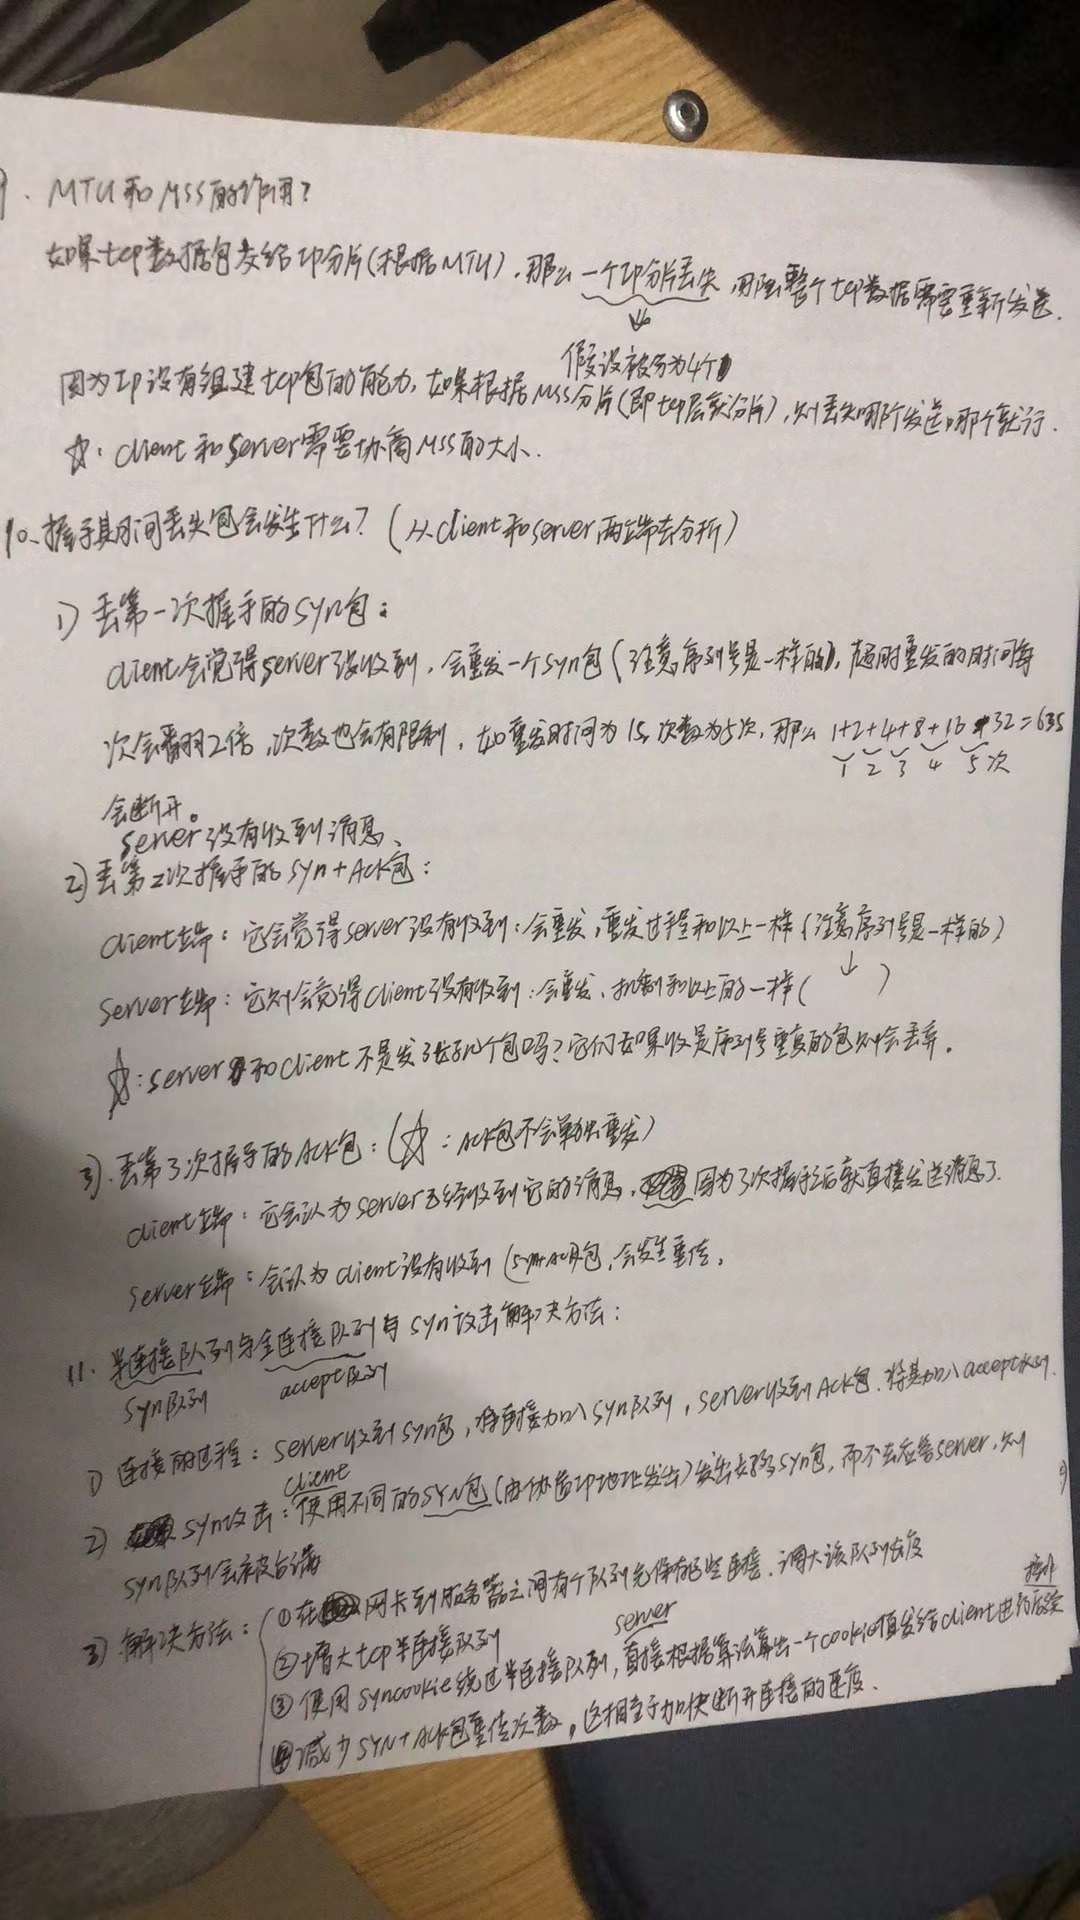 9. MTU和MSS的作用?
如果tcp数据包交给IP分片(根据MTU),那么一个IP分片丢失,那么整个tcp数据需要重新发送.
假设被分为4个
因为IP没有组建tcp包的能力,如果根据MSS分片(即tcp层就分片),则丢失哪个发送哪个就行.
☆: client和server需要协商MSS的大小.
10、握手期间丢失包会发生什么?(从client和server两端去分析)
1) 丢第一次握手的syn包:
client会觉得server没收到,会重发一个syn包(注意序列号是一样的),超时重发的时间每
次会翻2倍,次数也会有限制,如重发时间为1s,次数为5次,那么 1+2+4+8+16+32=63s
1 2 3 4 5次
会断开。
server没有收到消息、
2) 丢第2次握手的syn+ACK包:
client端: 它会觉得server没有收到:会重发,重发过程和以上一样(注意序列号是一样的)
server端: 它则会觉得client没有收到:会重发、机制和以上的一样( ↓ )
☆: server和client不是发了好几个包吗?它们如果收是序列号重复的包则会丢弃。
3). 丢第3次握手的ACK包:(☆: ACK包不会单独重发)
client端: 它会认为server已经收到它的消息,因为3次握手之后就直接发送消息了.
server端: 会认为client没有收到(syn+ACK)包,会发生重传.
11. 半连接队列与全连接队列与syn攻击解决方法:
syn队列 accept队列
1) 连接的过程: server收到syn包,将连接加入syn队列,server收到ACK包.将其加入accept队列.
client
2) syn攻击: 使用不同的SYN包(由伪造IP地址发出)发出好多syn包,而不去应答server,则
syn队列会被占满
3) 解决方法: ①在网卡到服务器之间有个队列先保存这些连接,调大该队列长度
②增大tcp半连接队列
server
③使用syncookie绕过半连接队列,直接根据算法算出一个cookie值发给client进行后续
操作
④减少SYN+ACK包重传次数,这相当于加快断开连接的速度.